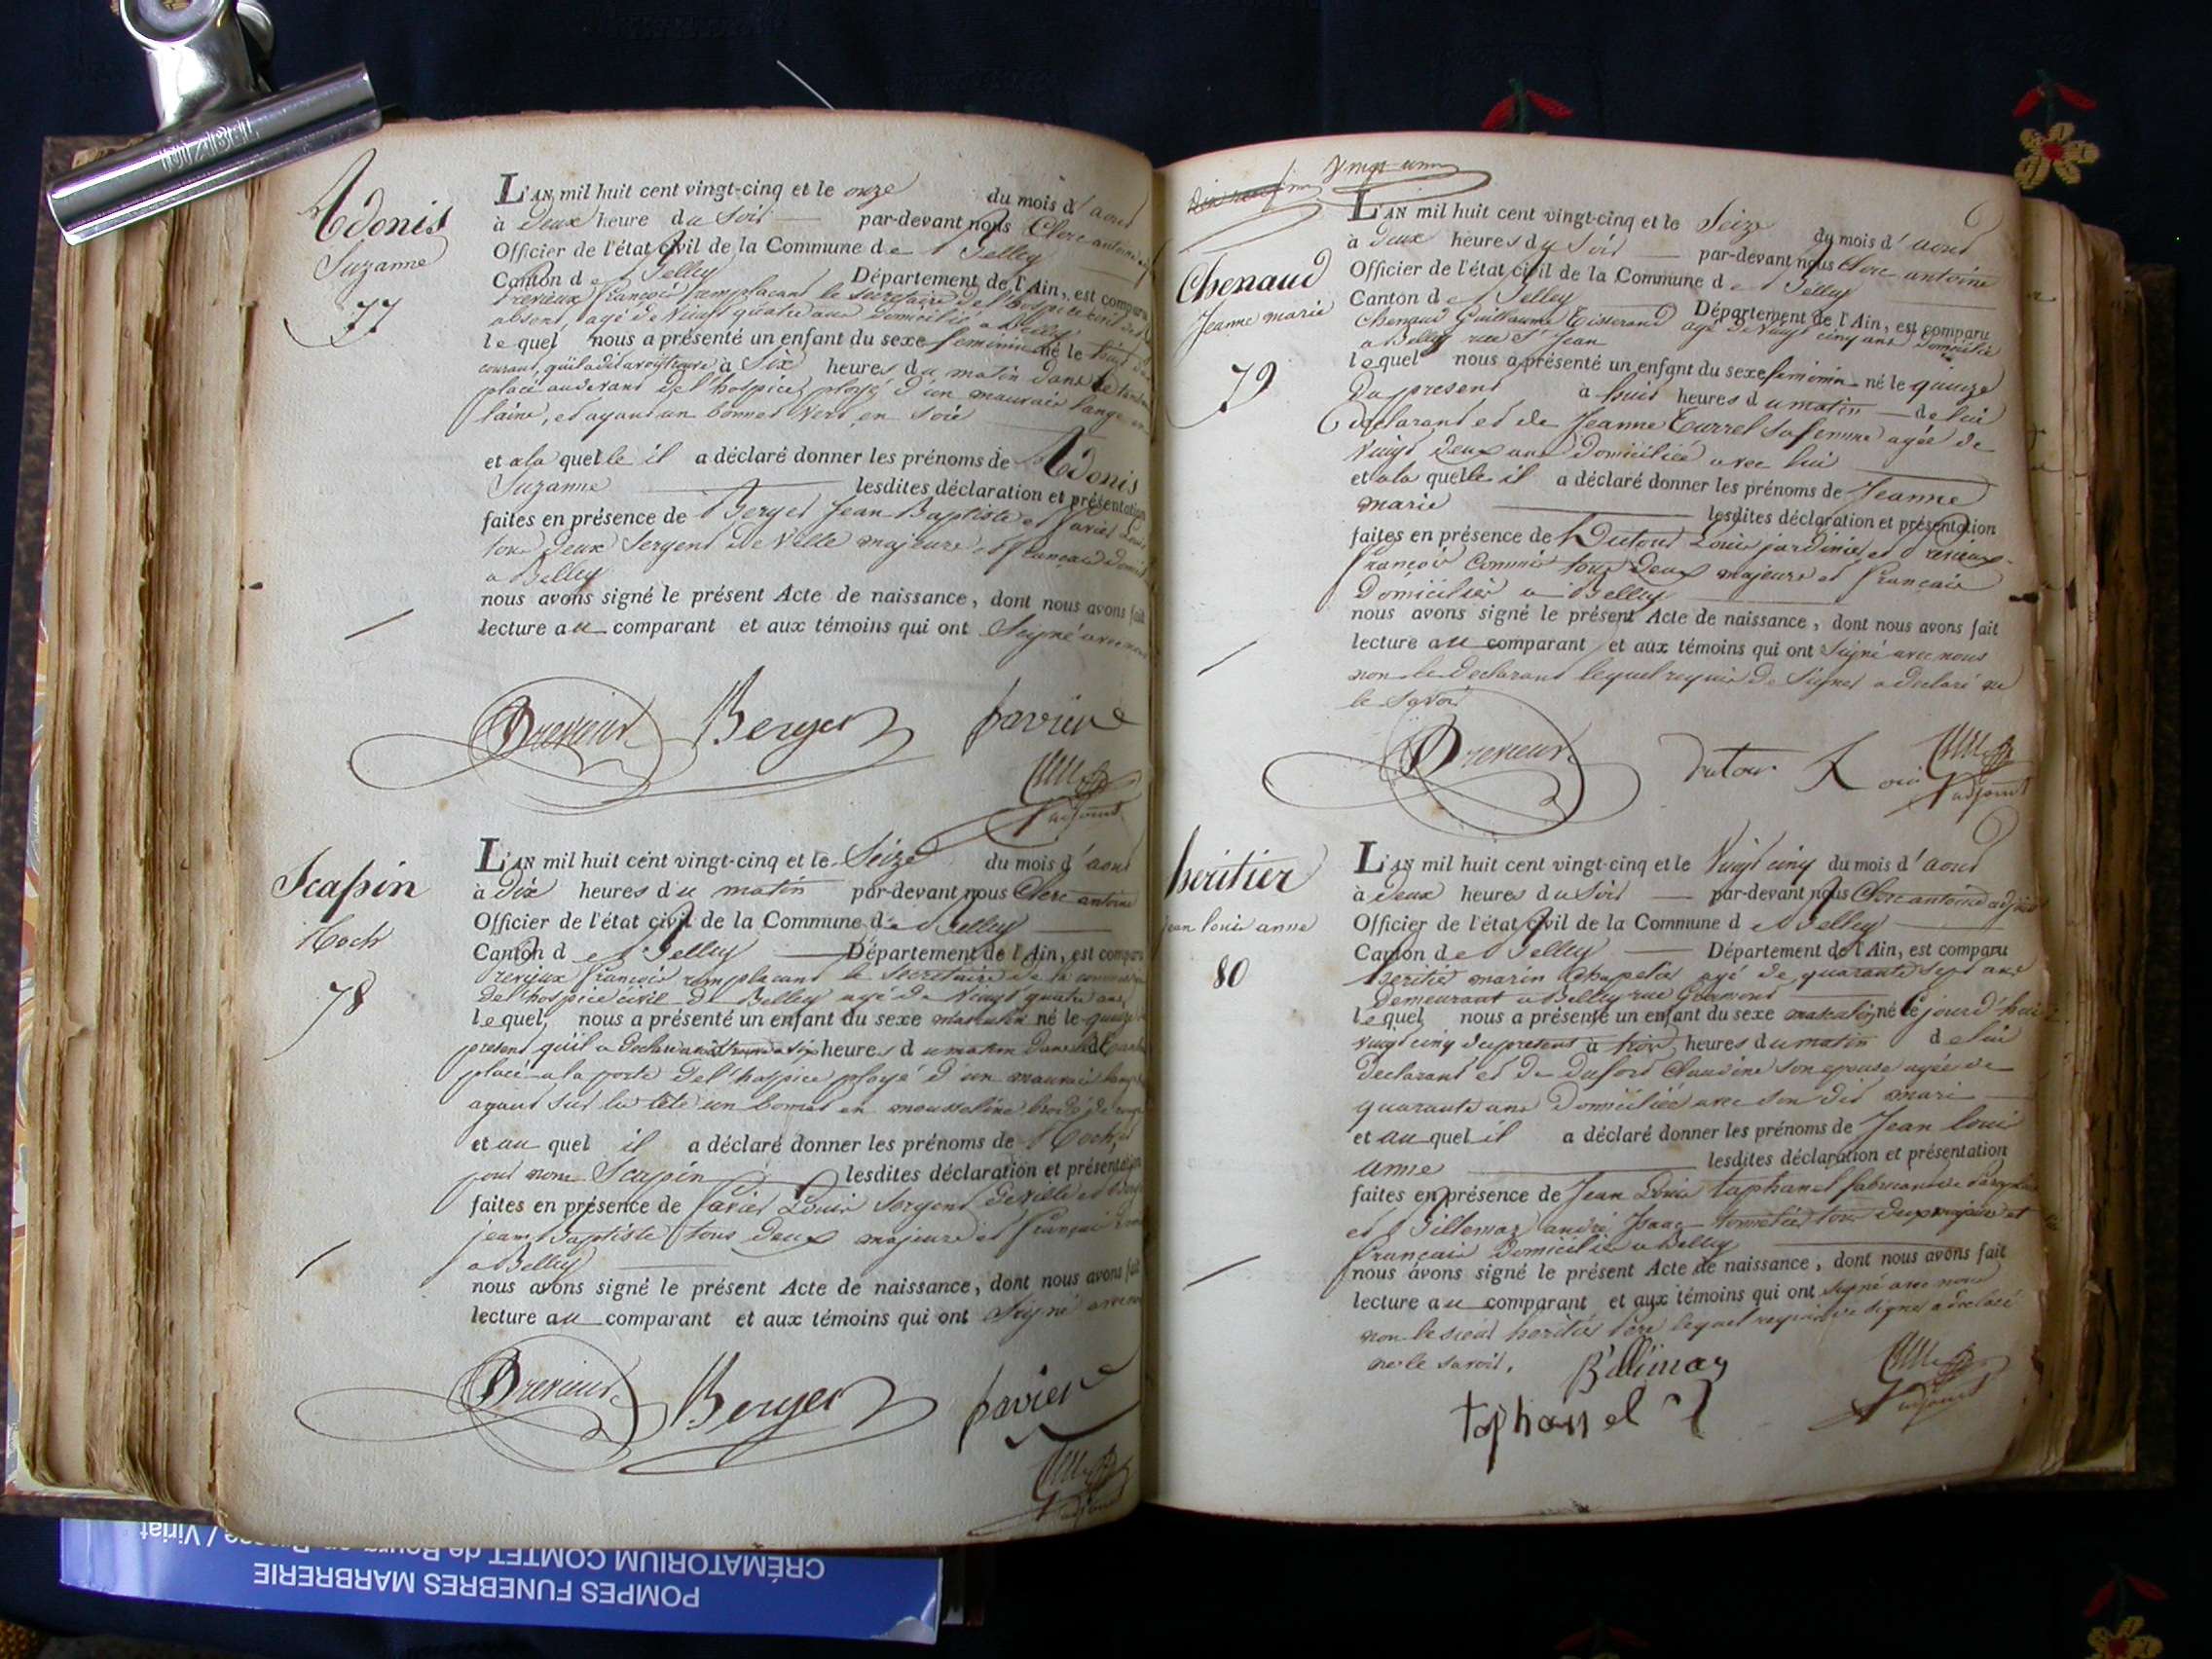 Adonis
Suzanne
77
L'AN mil huit cent vingt-cinq et le onze du mois d'aout
à Deux heure du Soir par-devant nous Clerc antoine
Officier de l'état civil de la Commune de Belley
Canton de Belley Département de l'Ain, est comparu
Prenieux françois remplacant le secretaire de l'hospice civil
absent, agé de Vingt quatre ans Domicilié a Belley
lequel nous a présenté un enfant du sexe feminin né le
courant, qu'il a dit avoir trouvé à Six heures du matin dans le
placé audevant de l'hospice, ployé d'un mauvais lange en
laine, et ayant un bonnet Vert en Soie
et a la quelle il a déclaré donner les prénoms de Adonis
Suzanne lesdites déclaration et présentation
faites en présence de Berger Jean Baptiste et favier Louis
tous Deux Sergent De Ville majeurs et français
a Belley
nous avons signé le présent Acte de naissance, dont nous avons fait
lecture au comparant et aux témoins qui ont Signé avec nous
Berger favier
adjoint
Scapin
Roch
78
L'AN mil huit cent vingt-cinq et le Seize du mois d'aout
à Dix heures du matin par-devant nous Clerc antoine
Officier de l'état civil de la Commune de Belley
Canton de Belley Département de l'Ain, est comparu
françois remplacant le Secretaire de la
de l'hospice civil de Belley agé de Vingt quatre ans
lequel nous a présenté un enfant du sexe masculin né le quinze
present qu'il a Declaré avoir trouvé a six heures du matin dans le
placé a la porte de l'hospice ployé d'un mauvais lange
ayant sur la tête un bonnet en mousseline brodé de rouge
et au quel il a déclaré donner les prénoms de Roch, et
pour nom Scapin lesdites déclaration et présentation
faites en présence de favier Louis Sergent de Ville et Berger
jean Baptiste tous deux majeurs et français
a Belley
nous avons signé le présent Acte de naissance, dont nous avons fait
lecture au comparant et aux témoins qui ont Signé avec nous
Berger favier
adjoint
Vingt unm
Chenaud
Jeanne marie
79
L'AN mil huit cent vingt-cinq et le Seize du mois d'aout
à Deux heures du Soir par-devant nous Clerc antoine
Officier de l'état civil de la Commune de Belley
Canton de Belley Département de l'Ain, est comparu
Chenaud Guillaume Tisserand agé de Vingt cinq ans Domicilié
a Belley rue St Jean
lequel nous a présenté un enfant du sexe feminin né le quinze
Du present à huit heures du matin de lui
Declarant et de Jeanne Turrel sa femme agée de
Vingt Deux ans Domiciliée avec lui
et a la quelle il a déclaré donner les prénoms de Jeanne
marie lesdites déclaration et présentation
faites en présence de Dutour Louis jardinier et
françois Commis tous Deux majeurs et français
Domiciliés a Belley
nous avons signé le présent Acte de naissance, dont nous avons fait
lecture au comparant et aux témoins qui ont Signé avec nous
non le Declarant lequel requis de Signer a declaré ne
le Savoir
Dutour Louis
adjoint
heritier
jean louis anne
80
L'AN mil huit cent vingt-cinq et le Vingt cinq du mois d'aout
à Deux heures du Soir par-devant nous Clerc antoine adjoint
Officier de l'état civil de la Commune de Belley
Canton de Belley Département de l'Ain, est comparu
heritier marin Chapelier agé de quarante Sept ans
Demeurant a Belley rue
lequel nous a présenté un enfant du sexe masculin né Ce jourd'hui
Vingt cinq du present à trois heures du matin de lui
Declarant et de Dufort Claudine son epouse agée de
quarante ans Domiciliée avec son Dit mari
et au quel il a déclaré donner les prénoms de Jean louis
anne lesdites déclaration et présentation
faites en présence de Jean Louis taphanel fabricant de
et Billemaz andré Isaac tous deux majeurs et
français Domiciliés a Belley
nous avons signé le présent Acte de naissance, dont nous avons fait
lecture au comparant et aux témoins qui ont signé avec nous
non le sieur heritier Pere lequel requis de signer a declaré
ne le savoir.
Billimaz
taphanel
adjoint
POMPES FUNEBRES MARBRERIE
CRÉMATORIUM COMTET de Bourg-en-Bresse / Viriat